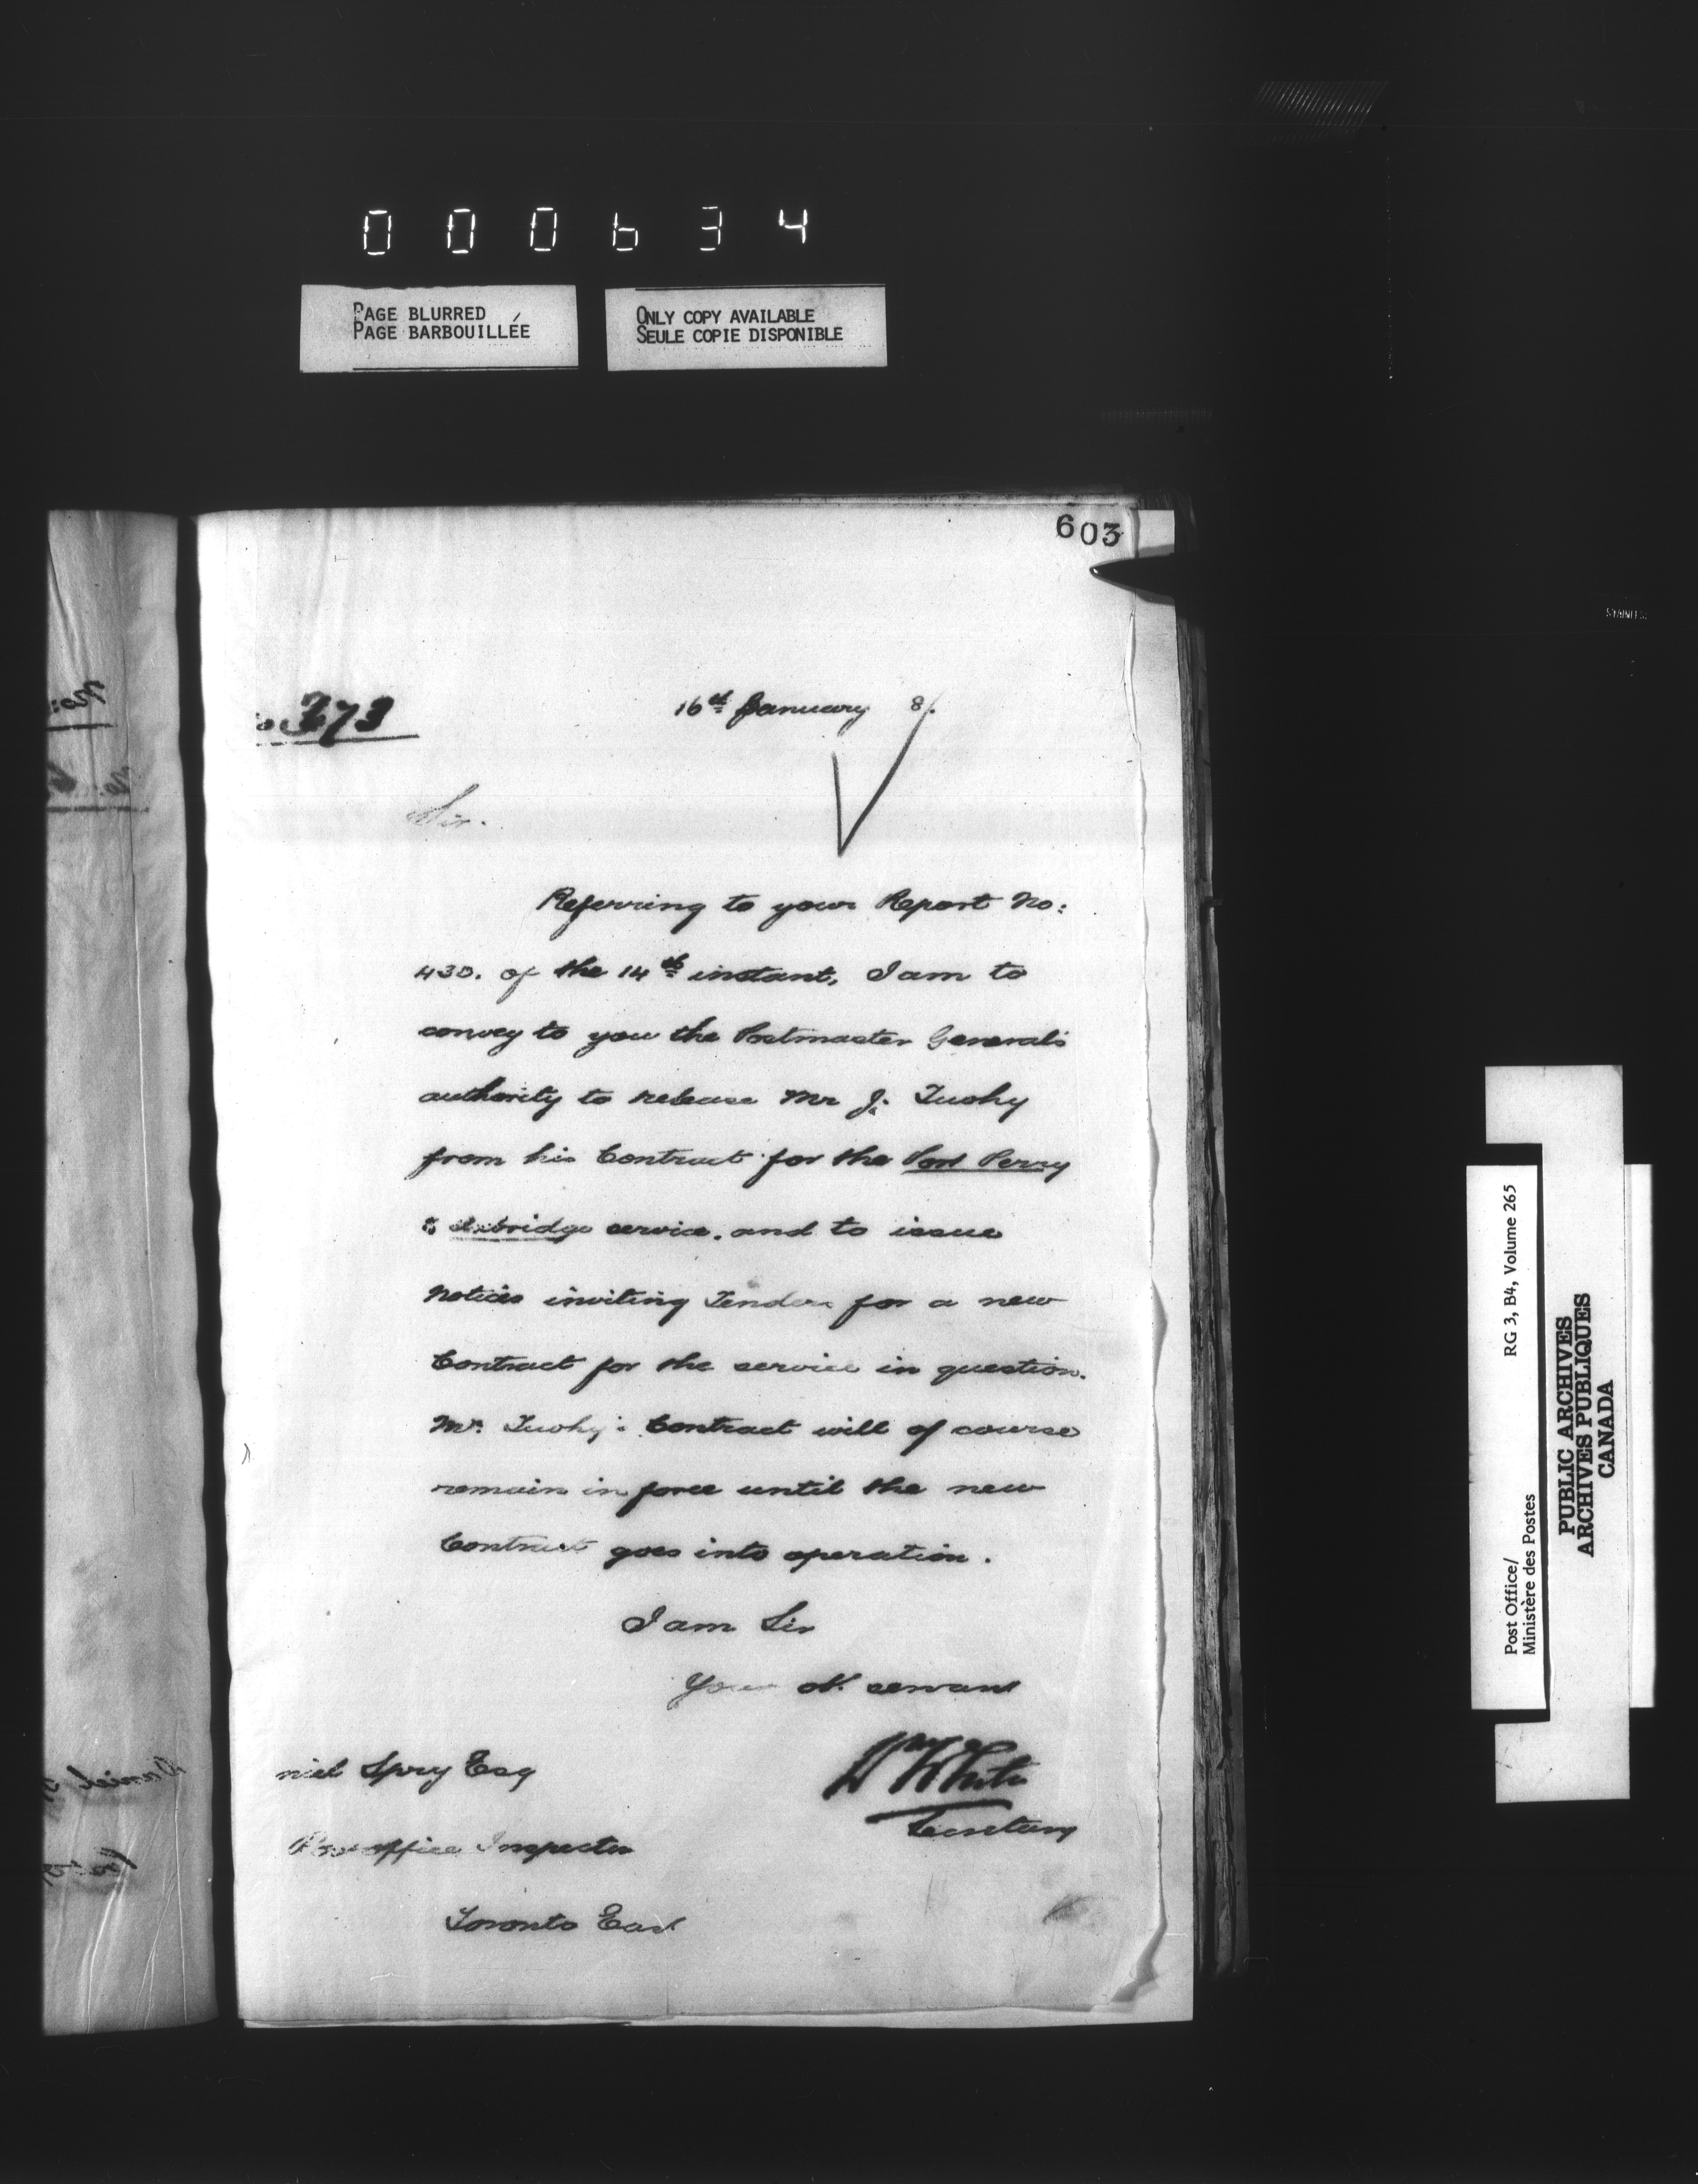 000634
PAGE BLURRED
PAGE BARBOUILLÉE
ONLY COPY AVAILABLE
SEULE COPIE DISPONIBLE
603
373
16th January 8
Sir.
Referring to your Report No:
430. of the 14th instant, I am to
convey to you the Postmaster General's
authority to release Mr J. Tuohy
from his Contract for the Port Perry
& Uxbridge service. and to issue
Notices inviting Tenders for a new
Contract for the service in question.
Mr. Tuohy's Contract will of course
remain in force until the new
Contract goes into operation.
I am Sir
Your ob. servant
Wm White
Secretary
niel Spry Esq
Post office Inspector
Toronto East
Post Office/ RG 3, B4, Volume 265
Ministère des Postes
PUBLIC ARCHIVES
ARCHIVES PUBLIQUES
CANADA